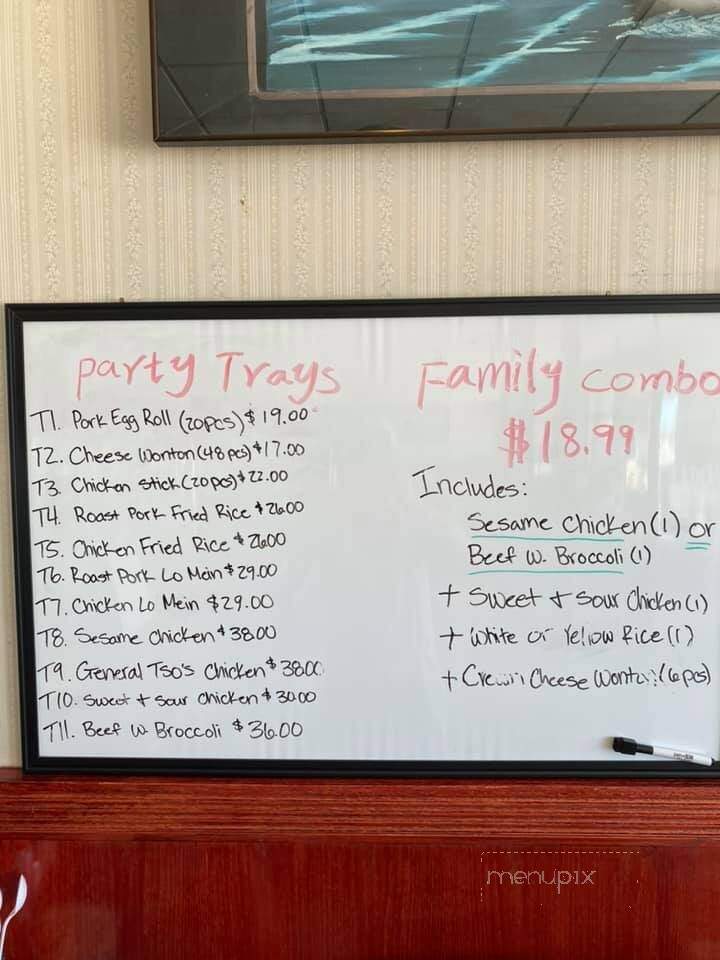 Party Trays
T1. Pork Egg Roll (20pcs) $19.00
T2. Cheese Wonton (48 pcs) $17.00
T3. Chicken Stick (20pcs) $22.00
T4. Roast Pork Fried Rice $26.00
T5. Chicken Fried Rice $26.00
T6. Roast Pork Lo Mein $29.00
T7. Chicken Lo Mein $29.00
T8. Sesame Chicken $38.00
T9. General Tso's Chicken $38.00
T10. Sweet + Sour Chicken $30.00
T11. Beef W. Broccoli $36.00
Family Combo
$18.99
Includes:
Sesame Chicken (1) or
Beef W. Broccoli (1)
+ Sweet + Sour Chicken (1)
+ White or Yellow Rice (1)
+ Cream Cheese Wonton (6 pcs)
menupix